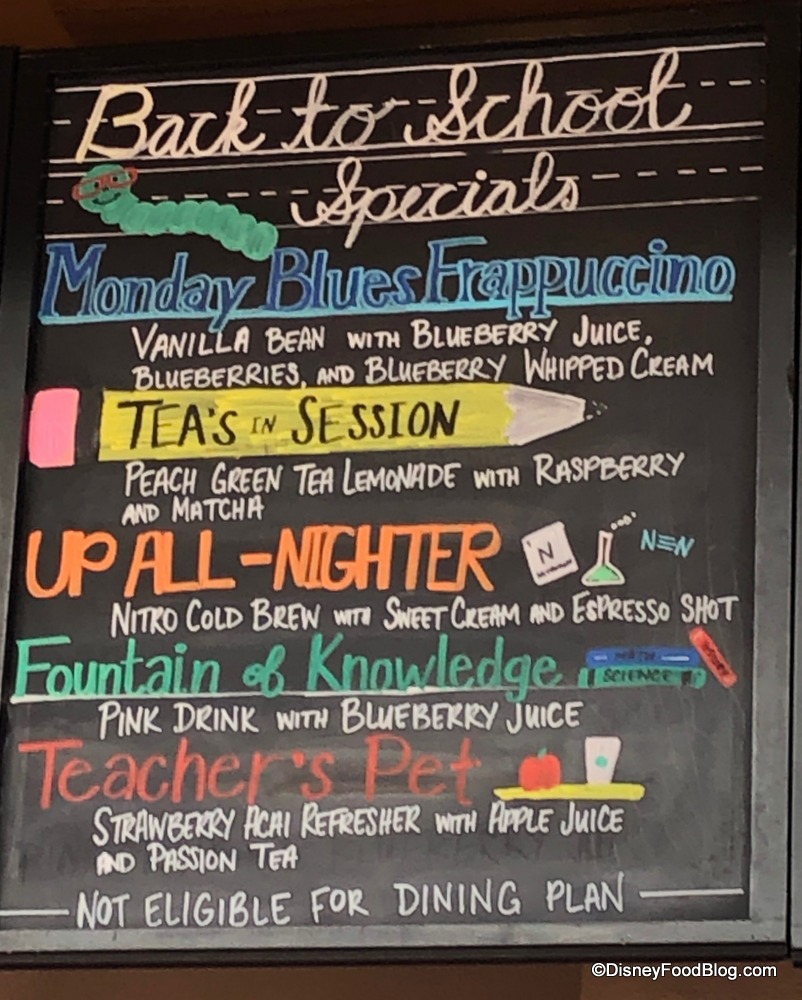 Back to School
Specials
Monday Blues Frappuccino
VANILLA BEAN WITH BLUEBERRY JUICE,
BLUEBERRIES, AND BLUEBERRY WHIPPED CREAM
TEA'S IN SESSION
PEACH GREEN TEA LEMONADE WITH RASPBERRY
AND MATCHA
UP ALL-NIGHTER
N
N≡N
NITRO COLD BREW WITH SWEET CREAM AND ESPRESSO SHOT
Fountain of Knowledge
MATH
SCIENCE
PINK DRINK WITH BLUEBERRY JUICE
Teacher's Pet
STRAWBERRY ACAI REFRESHER WITH APPLE JUICE
AND PASSION TEA
NOT ELIGIBLE FOR DINING PLAN
©DisneyFoodBlog.com